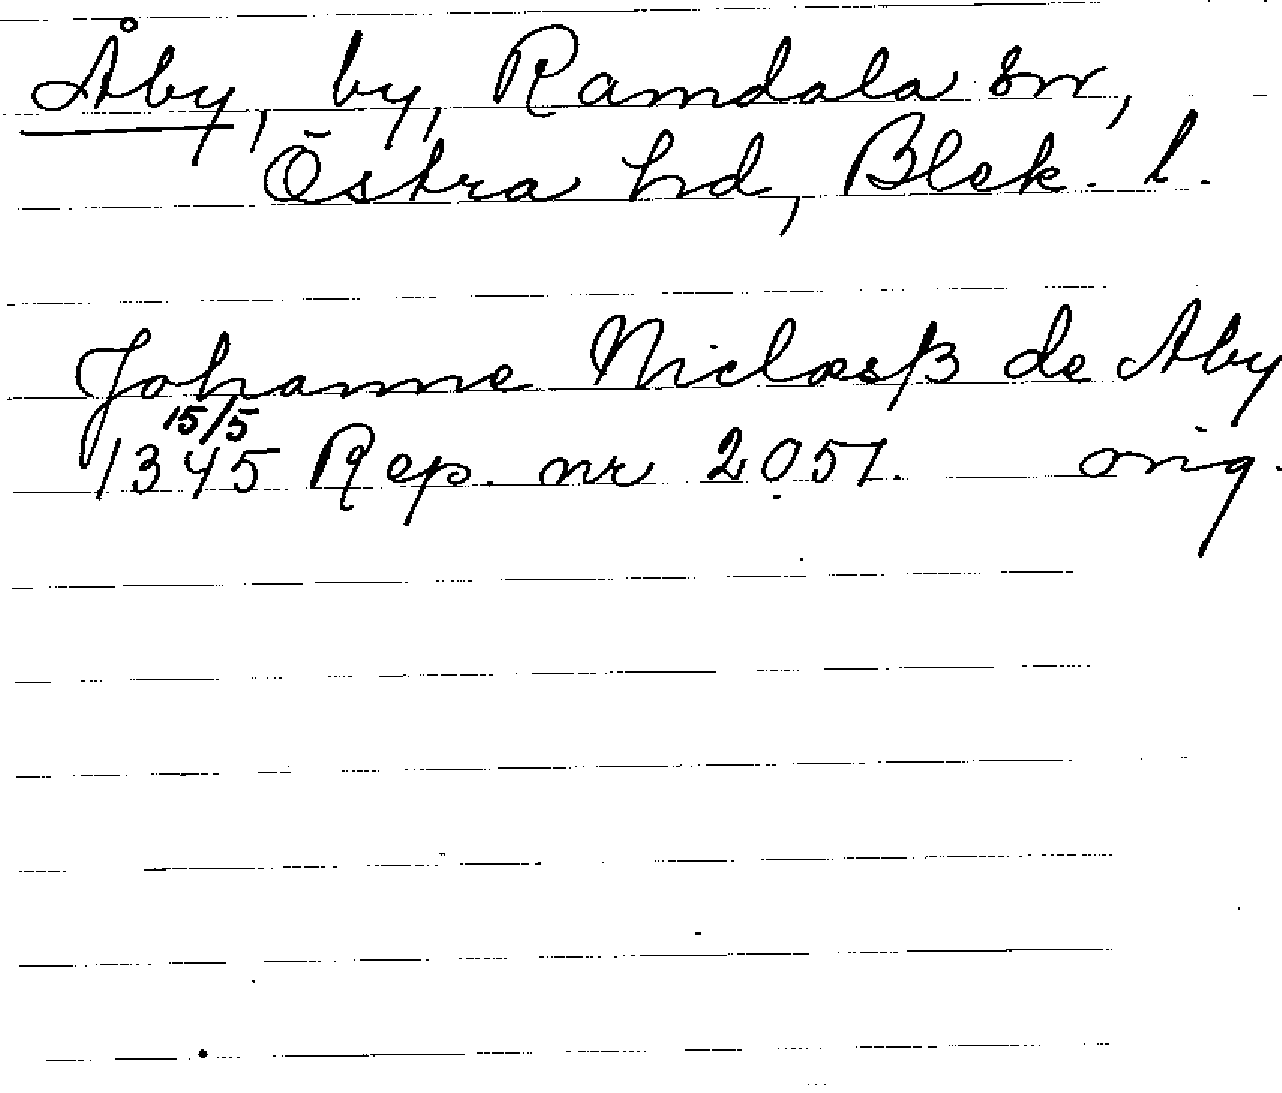 Åby, by, Ramdala sn,
Östra hd, Blek. l.
Johanne Niclæsß de Aby
15/5
1345 Rep. nr 2051. orig.